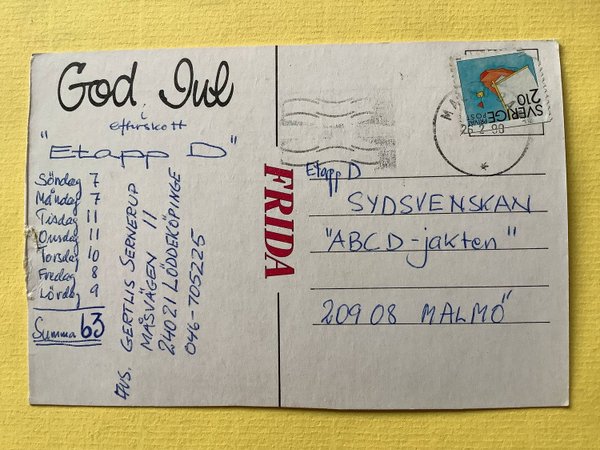 God Jul
i
efterskott
"Etapp D"
Söndag 7
Måndag 7
Tisdag 11
Onsdag 11
Torsdag 10
Fredag 8
Lördag 9
Summa 63
Avs. GERTLIS SERNERUP
MÅSVÄGEN 11
24021 LÖDDEKÖPINGE
046-705225
FRIDA
SVERIGE
POST
210
26.2.90
Etapp D
SYDSVENSKAN
"ABCD-jakten"
20908 MALMÖ